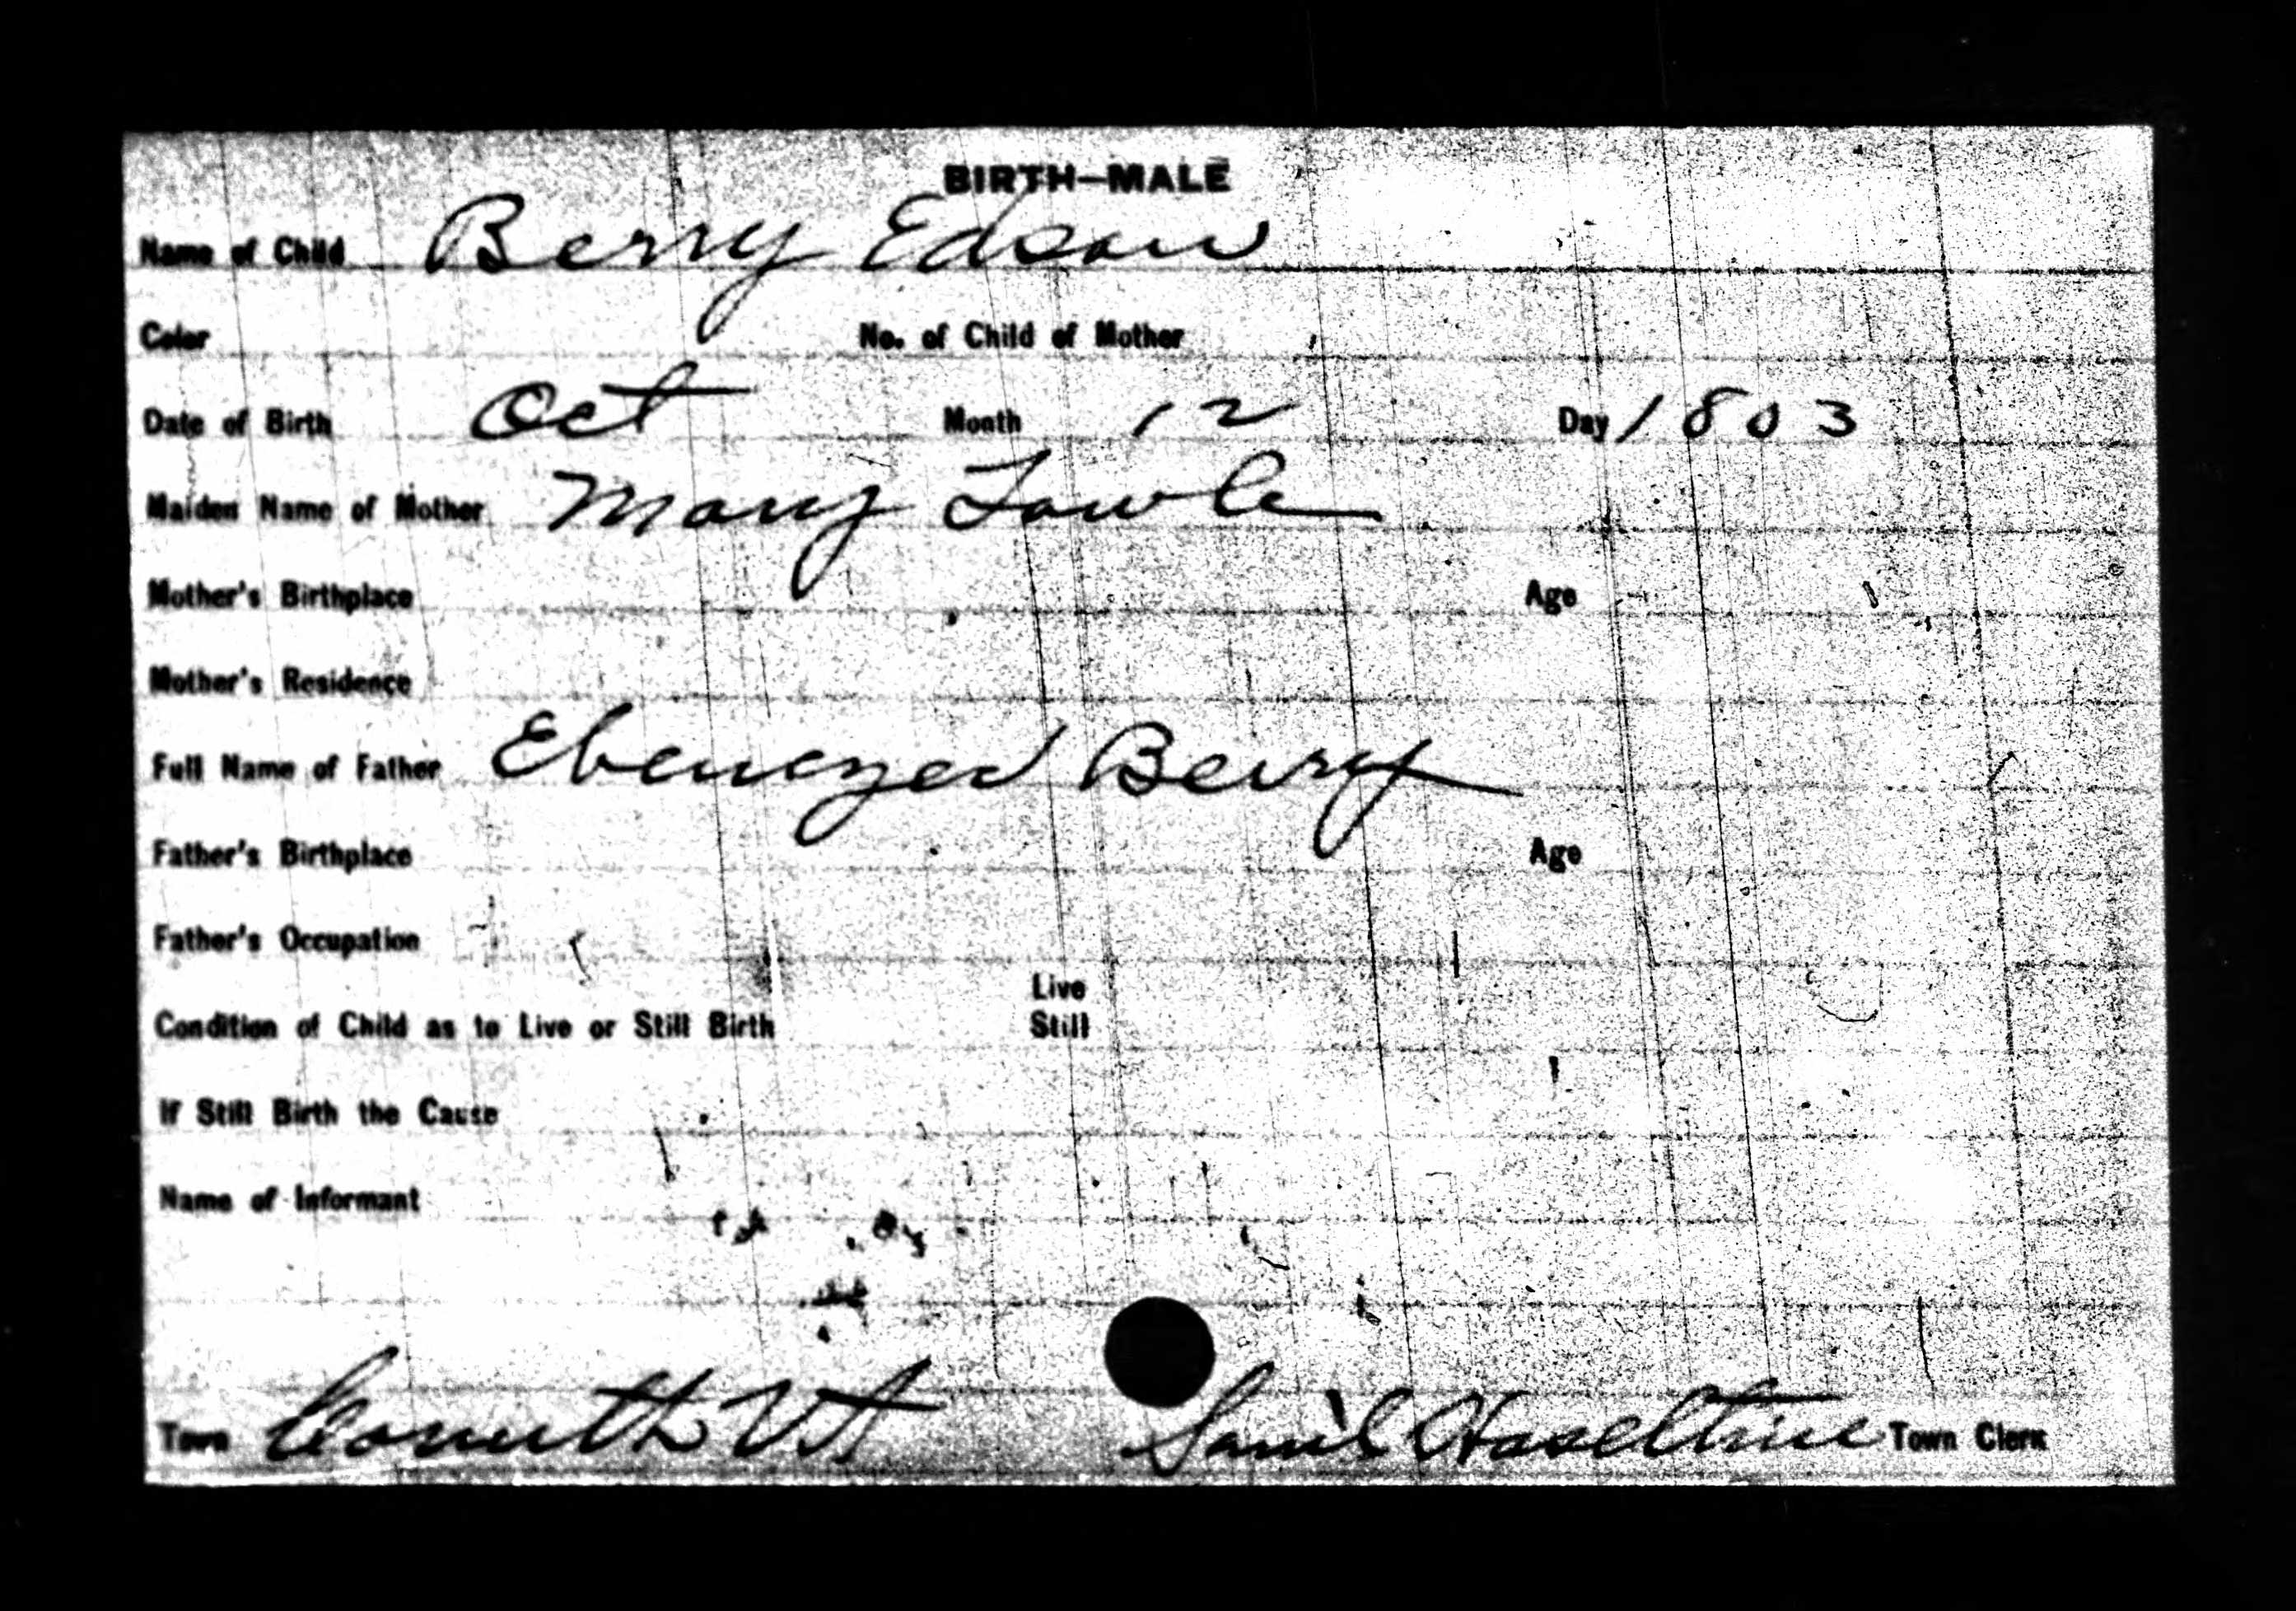 BIRTH—MALE
Name of Child Berry Edson
Color No. of Child of Mother
Date of Birth Oct Month 12 Day 1803
Maiden Name of Mother Mary Towle
Mother's Birthplace Age
Mother's Residence
Full Name of Father Ebenezer Berry
Father's Birthplace Age
Father's Occupation
Live
Condition of Child as to Live or Still Birth Still
If Still Birth the Cause
Name of Informant
Town Corinth Vt Sam'l Haseltine Town Clerk